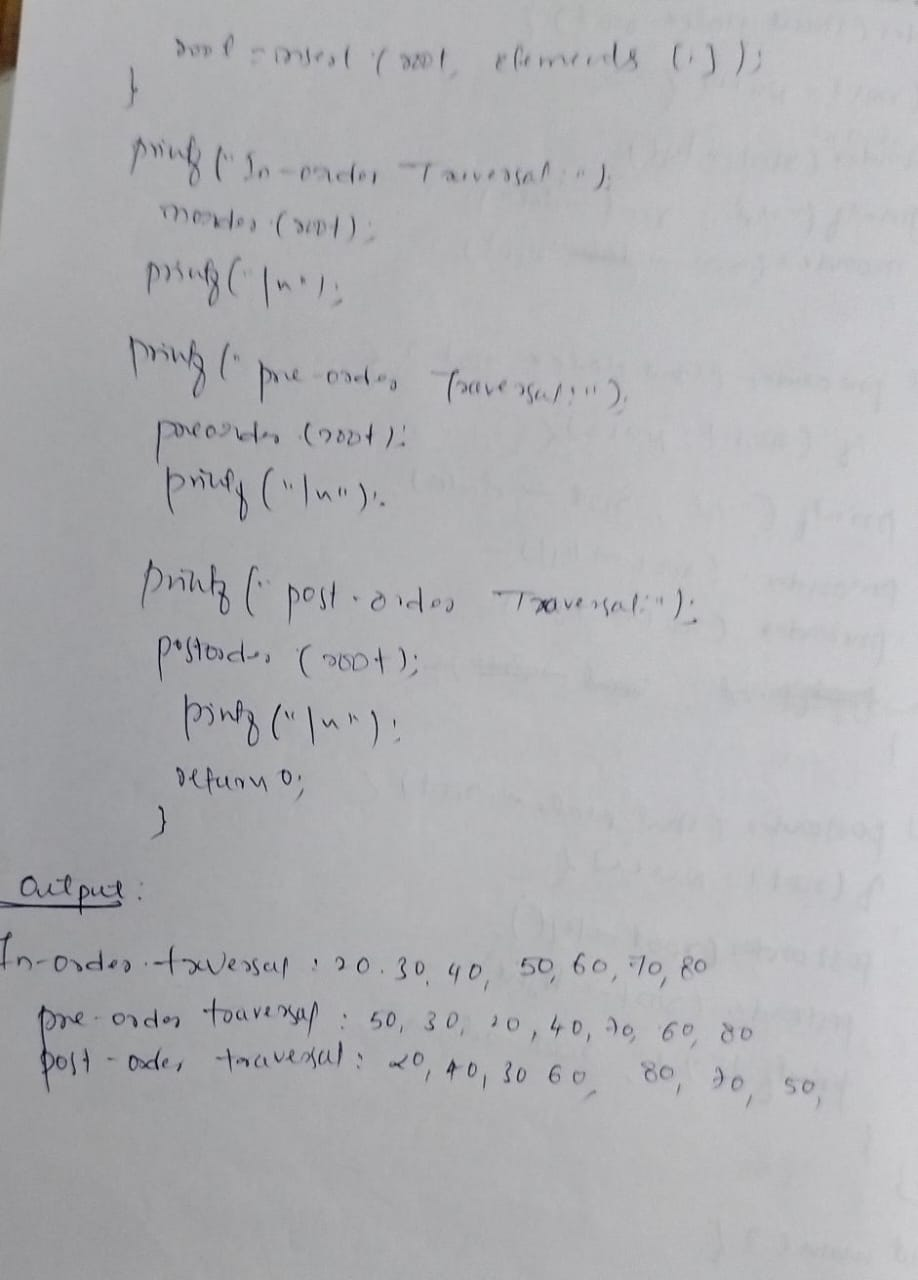 root = insert (root, elements [i]);
}
printf (" In-order Traversal: ");
inorder (root);
printf ("\n");
printf (" pre-order Traversal: ");
preorder (root);
printf ("\n");
printf (" post-order Traversal: ");
postorder (root);
pintf ("\n");
return 0;
}
Output:
In-order traversal : 20. 30, 40, 50, 60, 70, 80
pre-order traversal : 50, 30, 20, 40, 70, 60, 80
post-order traversal : 20, 40, 30 60, 80, 70, 50,